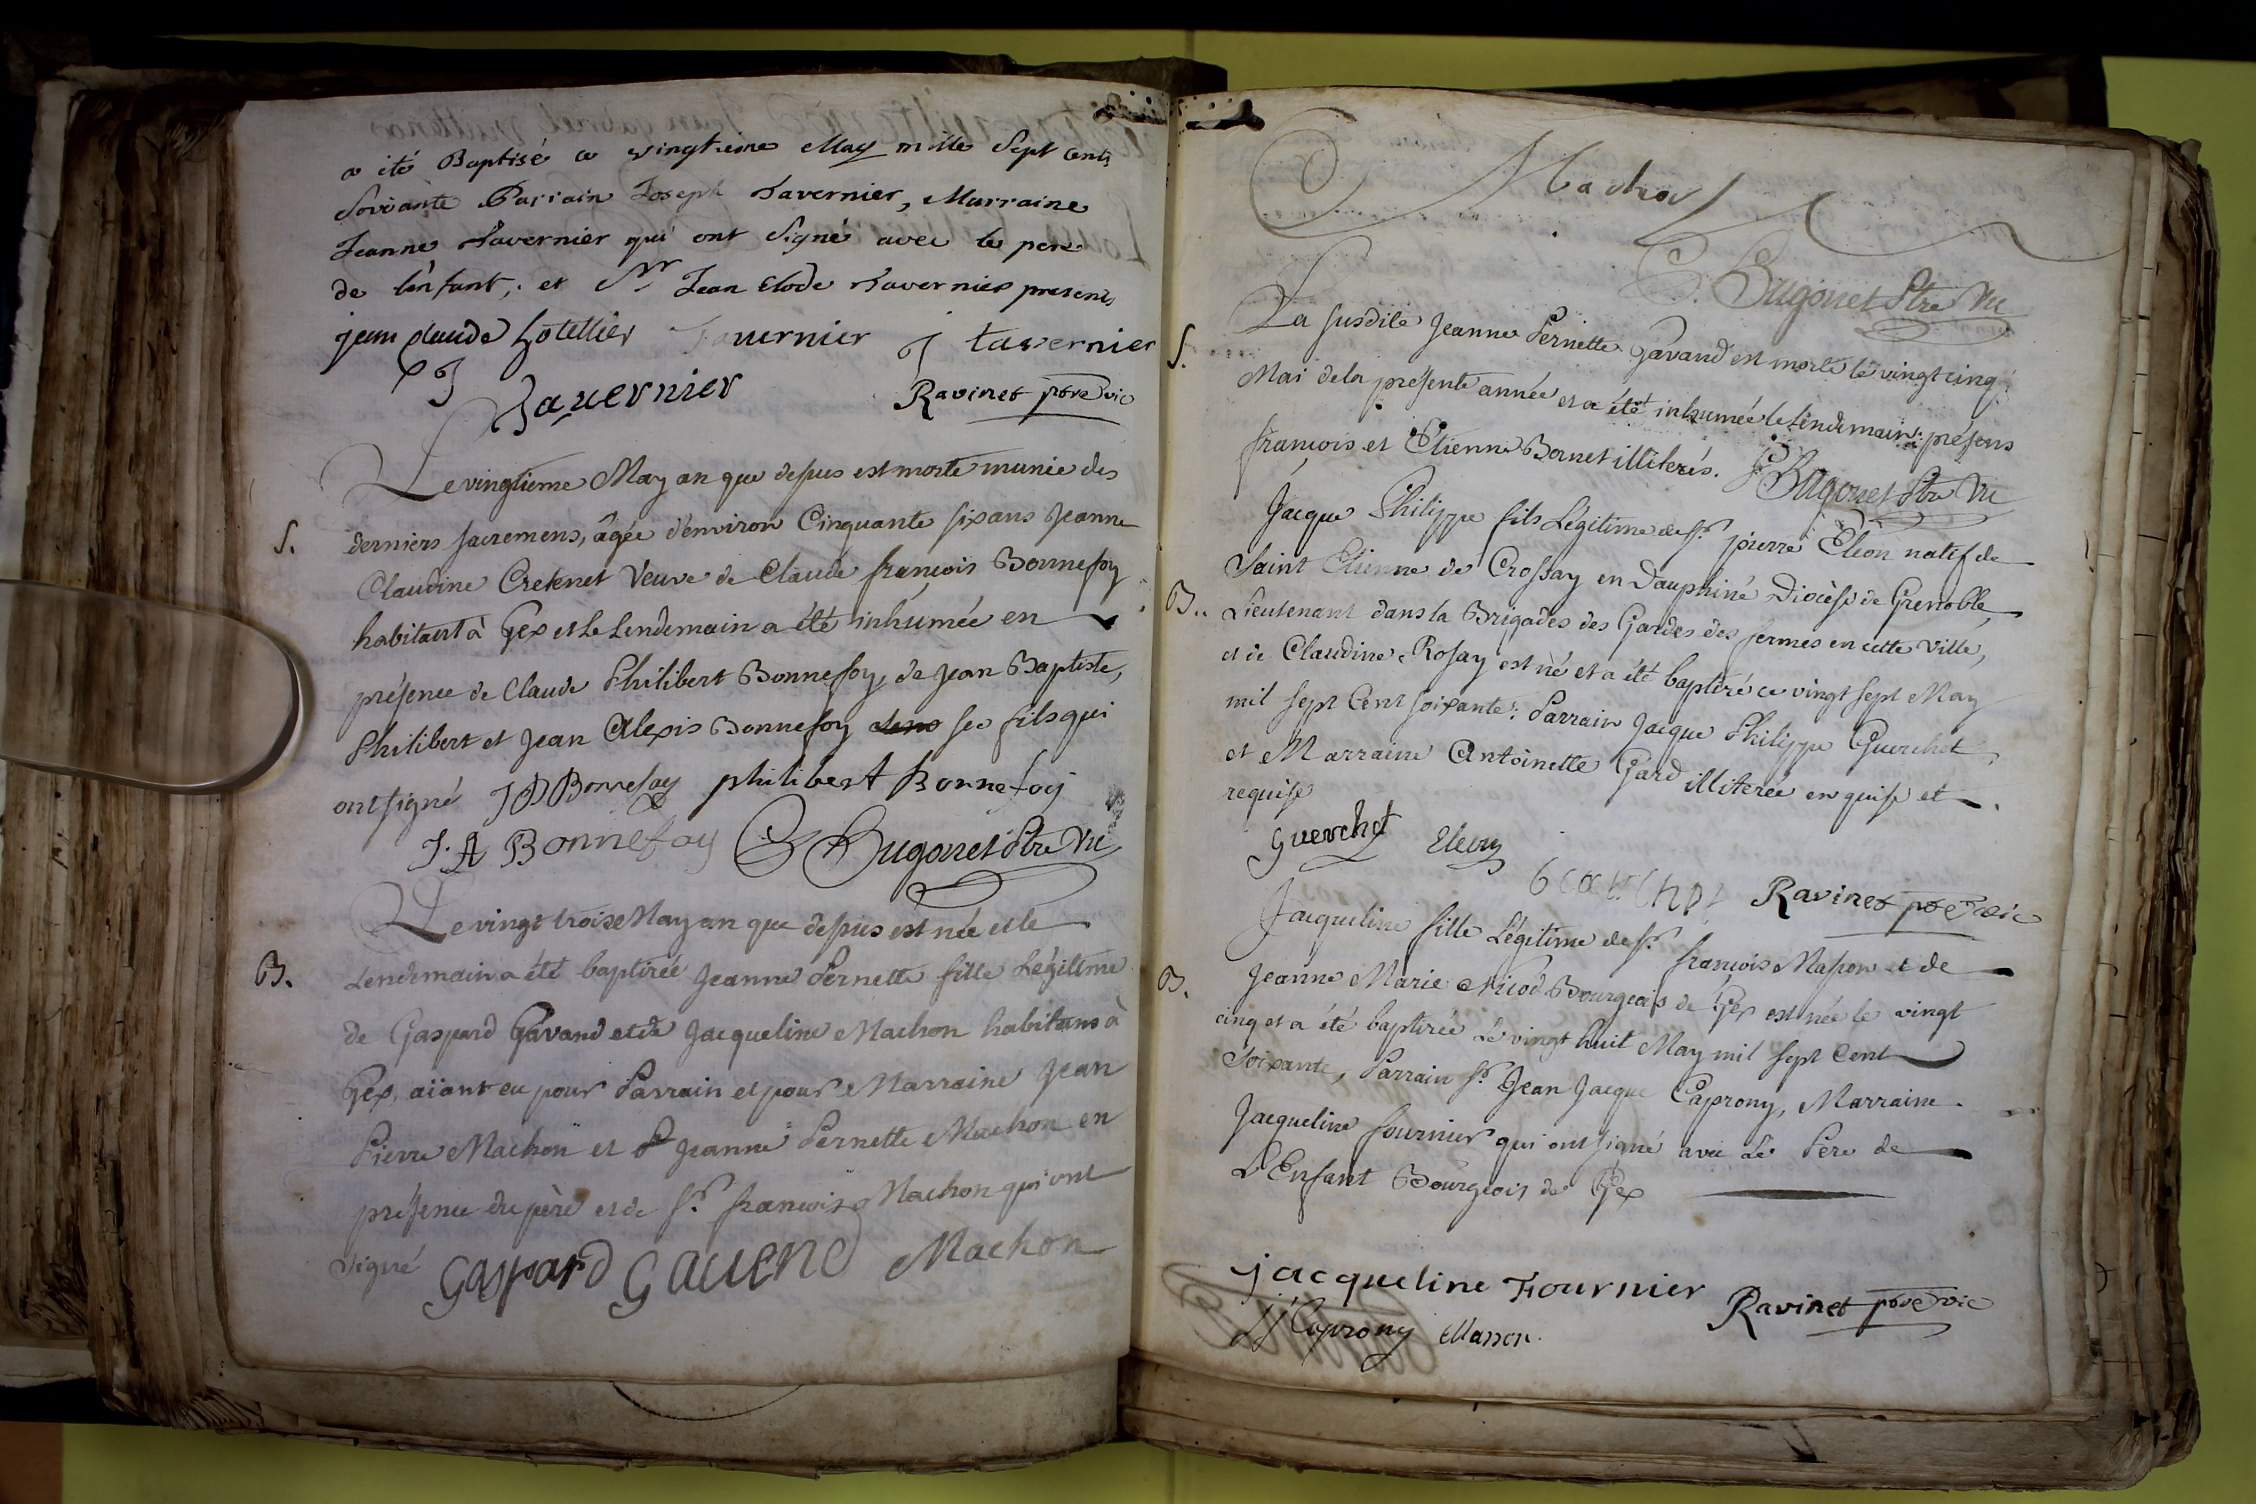 a eté Baptisé ce vingtieme May mille Sept cents
Soixante Parrain Joseph Tavernier, Marraine
Jeanne Tavernier qui ont Signé avec le pere
de l'enfant, et Sr Jean Clode Tavernier presents
jean claude hotellier Tavernier j tavernier
J Tavernier Ravinet ptre vic
Le vingtieme May an que dessus est morte munie des
S. derniers sacremens, âgée d'environ Cinquante six ans Jeanne
Claudine Cretenet Veuve de Claude françois Bonnefoy
habitant à Gex et le Lendemain a été inhumée en
présence de Claude Philibert Bonnefoy, de Jean Baptiste,
Philibert et Jean Alexis Bonnefoy se fils qui
ont signé J B Bonnefoy philibert Bonnefoy
J. A Bonnefoy Bugonet Ptre Vic
Le vingt trois May an que dessus est née et le
B. Lendemain a été baptisée Jeanne Pernette fille Légitime
de Gaspard Gavand et de Jacqueline Machon habitans à
Gex, aïant eu pour Parrain et pour Marraine Jean
Pierre Machon et Jeanne Pernette Machon en
présence du père et de Sr. françois Machon qui ont
Signé Gaspard Gauend Machon
Machon
Bugonet Ptre Vic
S. La susdite Jeanne Pernette Gavand est morte le vingt cinq
Mai de la présente année et a été inhumée le lendemain: présens
françois et Etienne Bornet illiterés. Bugonet Ptre Vic
Jacque Philippe fils Légitime de Sr. pierre Eléon natif de
Saint Etienne de Crossay en Dauphiné Diocèse de Grenoble,
B. Lieutenant dans la Brigades des Gardes des fermes en cette Ville,
et de Claudine Rosay est né et a été baptisé ce vingt sept May
mil sept Cent soixante: Parrain Jacque Philippe Guerchet,
et Marraine Antoinette Gard illiterée enquise et
requise
Guerchet Ravinet ptre vic
Jacqueline fille Légitime de Sr. françois Masson et de
B. Jeanne Marie Nicod Bourgeois de Gex est née le vingt
cinq et a été baptisée Le vingt huit May mil sept Cent
Soixante, Parrain Sr. Jean Jacque Caprony, Marraine
Jacqueline fournier qui ont signé avec Le Père de
L'Enfant Bourgeois de Gex
jacqueline Fournier Ravinet ptre vic
JJ Caprony Masson